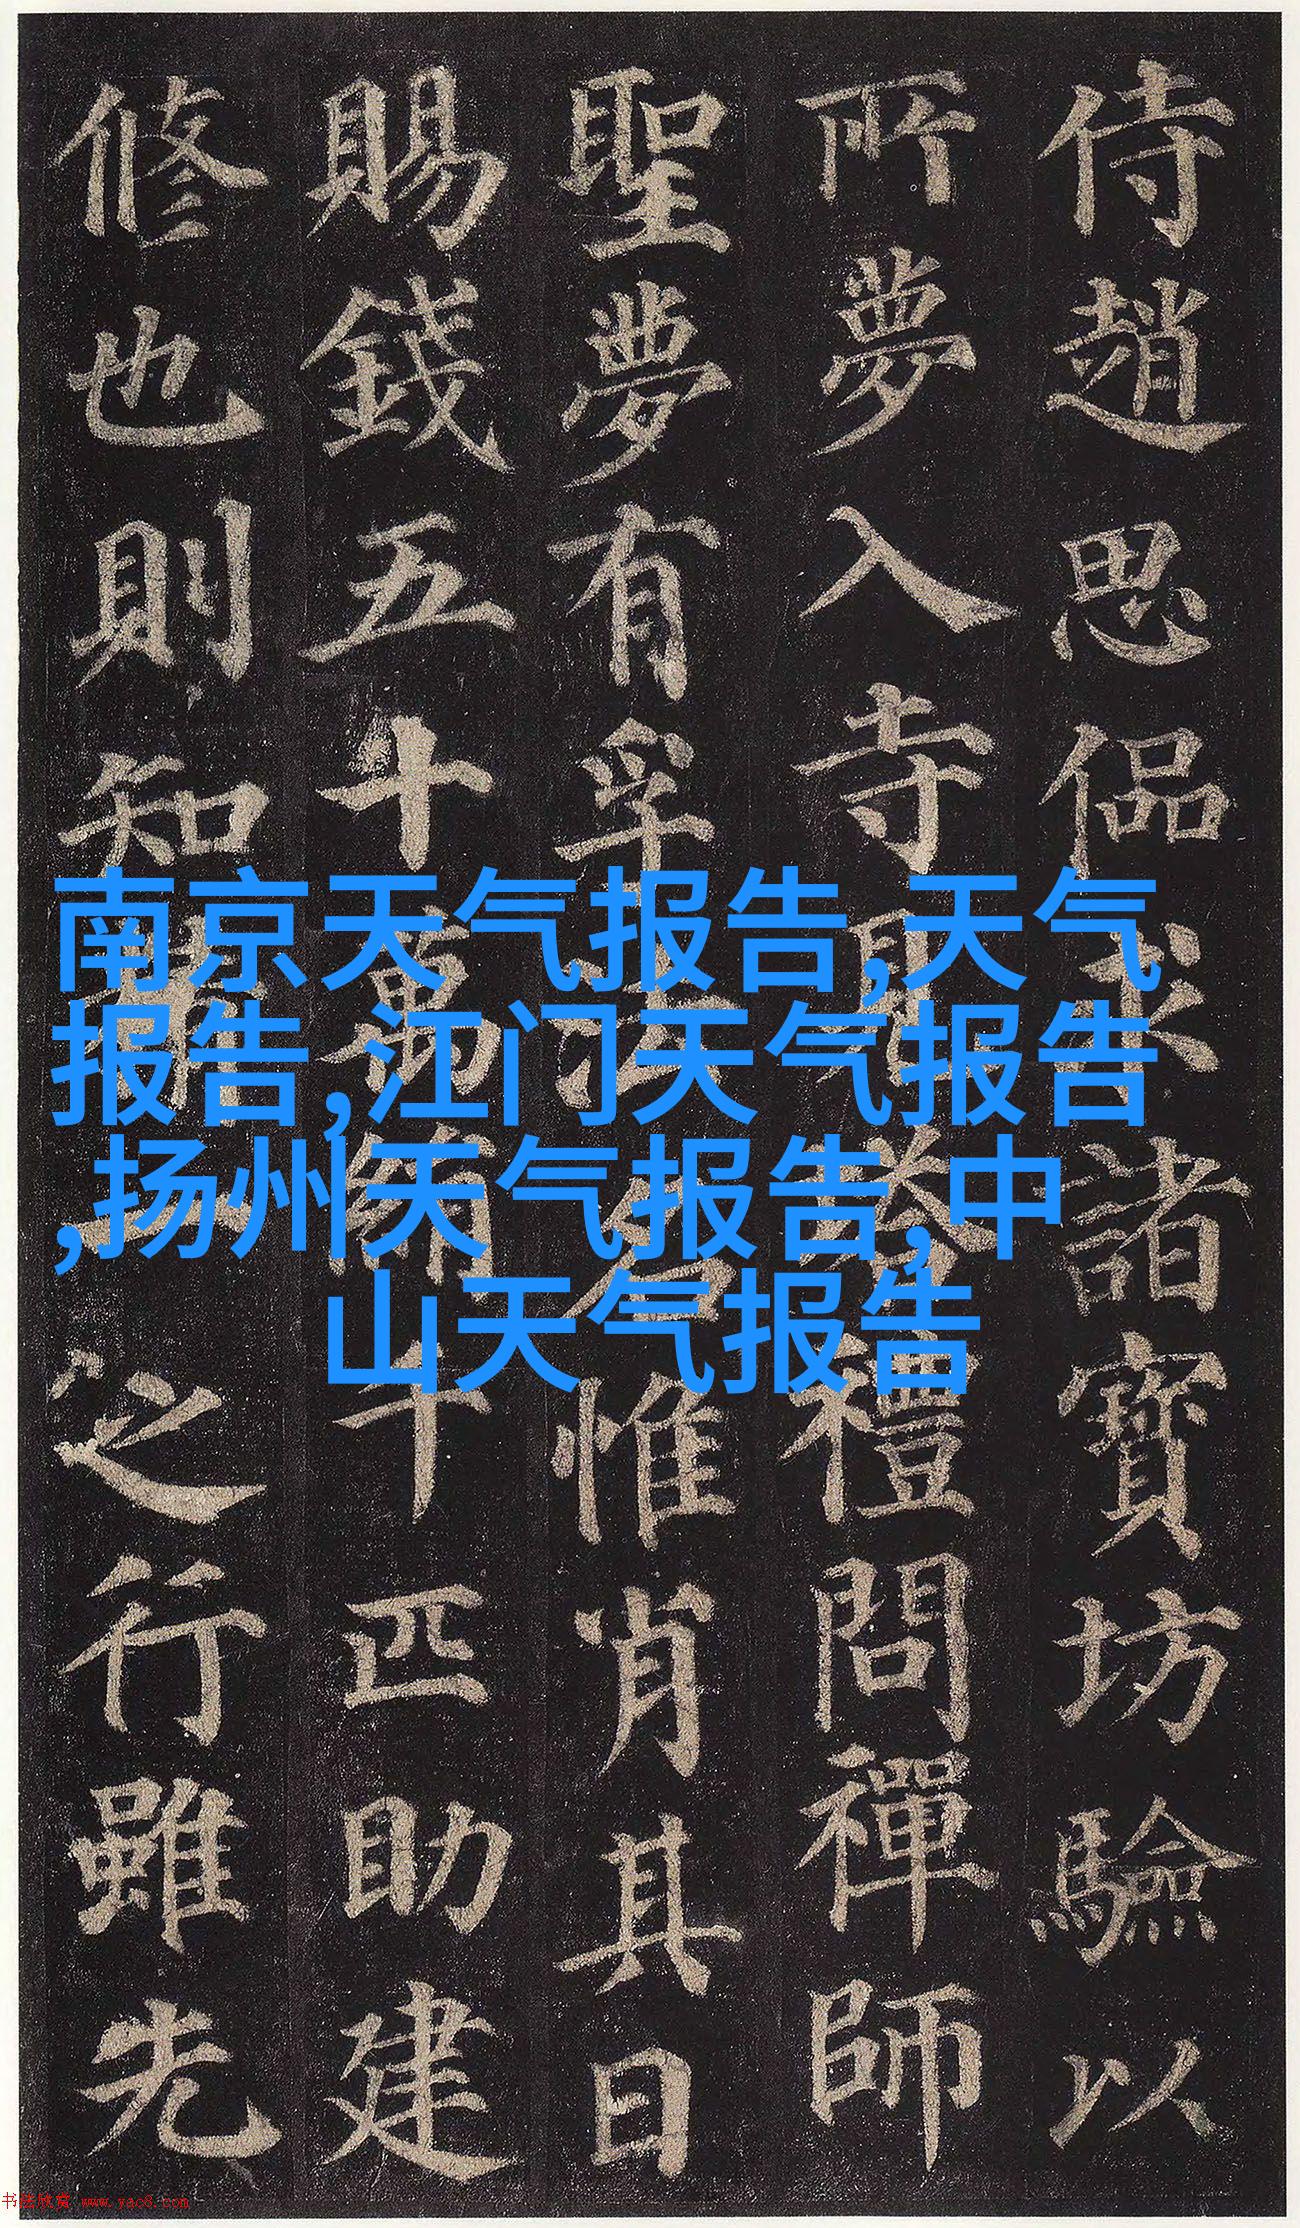 侍趙思偘求諸寶坊驗以
所夢入寺見塔禮問禪師
聖夢有孚法名惟肖其日
賜錢五十萬絹千匹助建
修也則知精一之行雖先
南京天气报告,天气
报告,江门天气报告
,扬州天气报告,中
山天气报告
书法欣赏 www.yac8.com